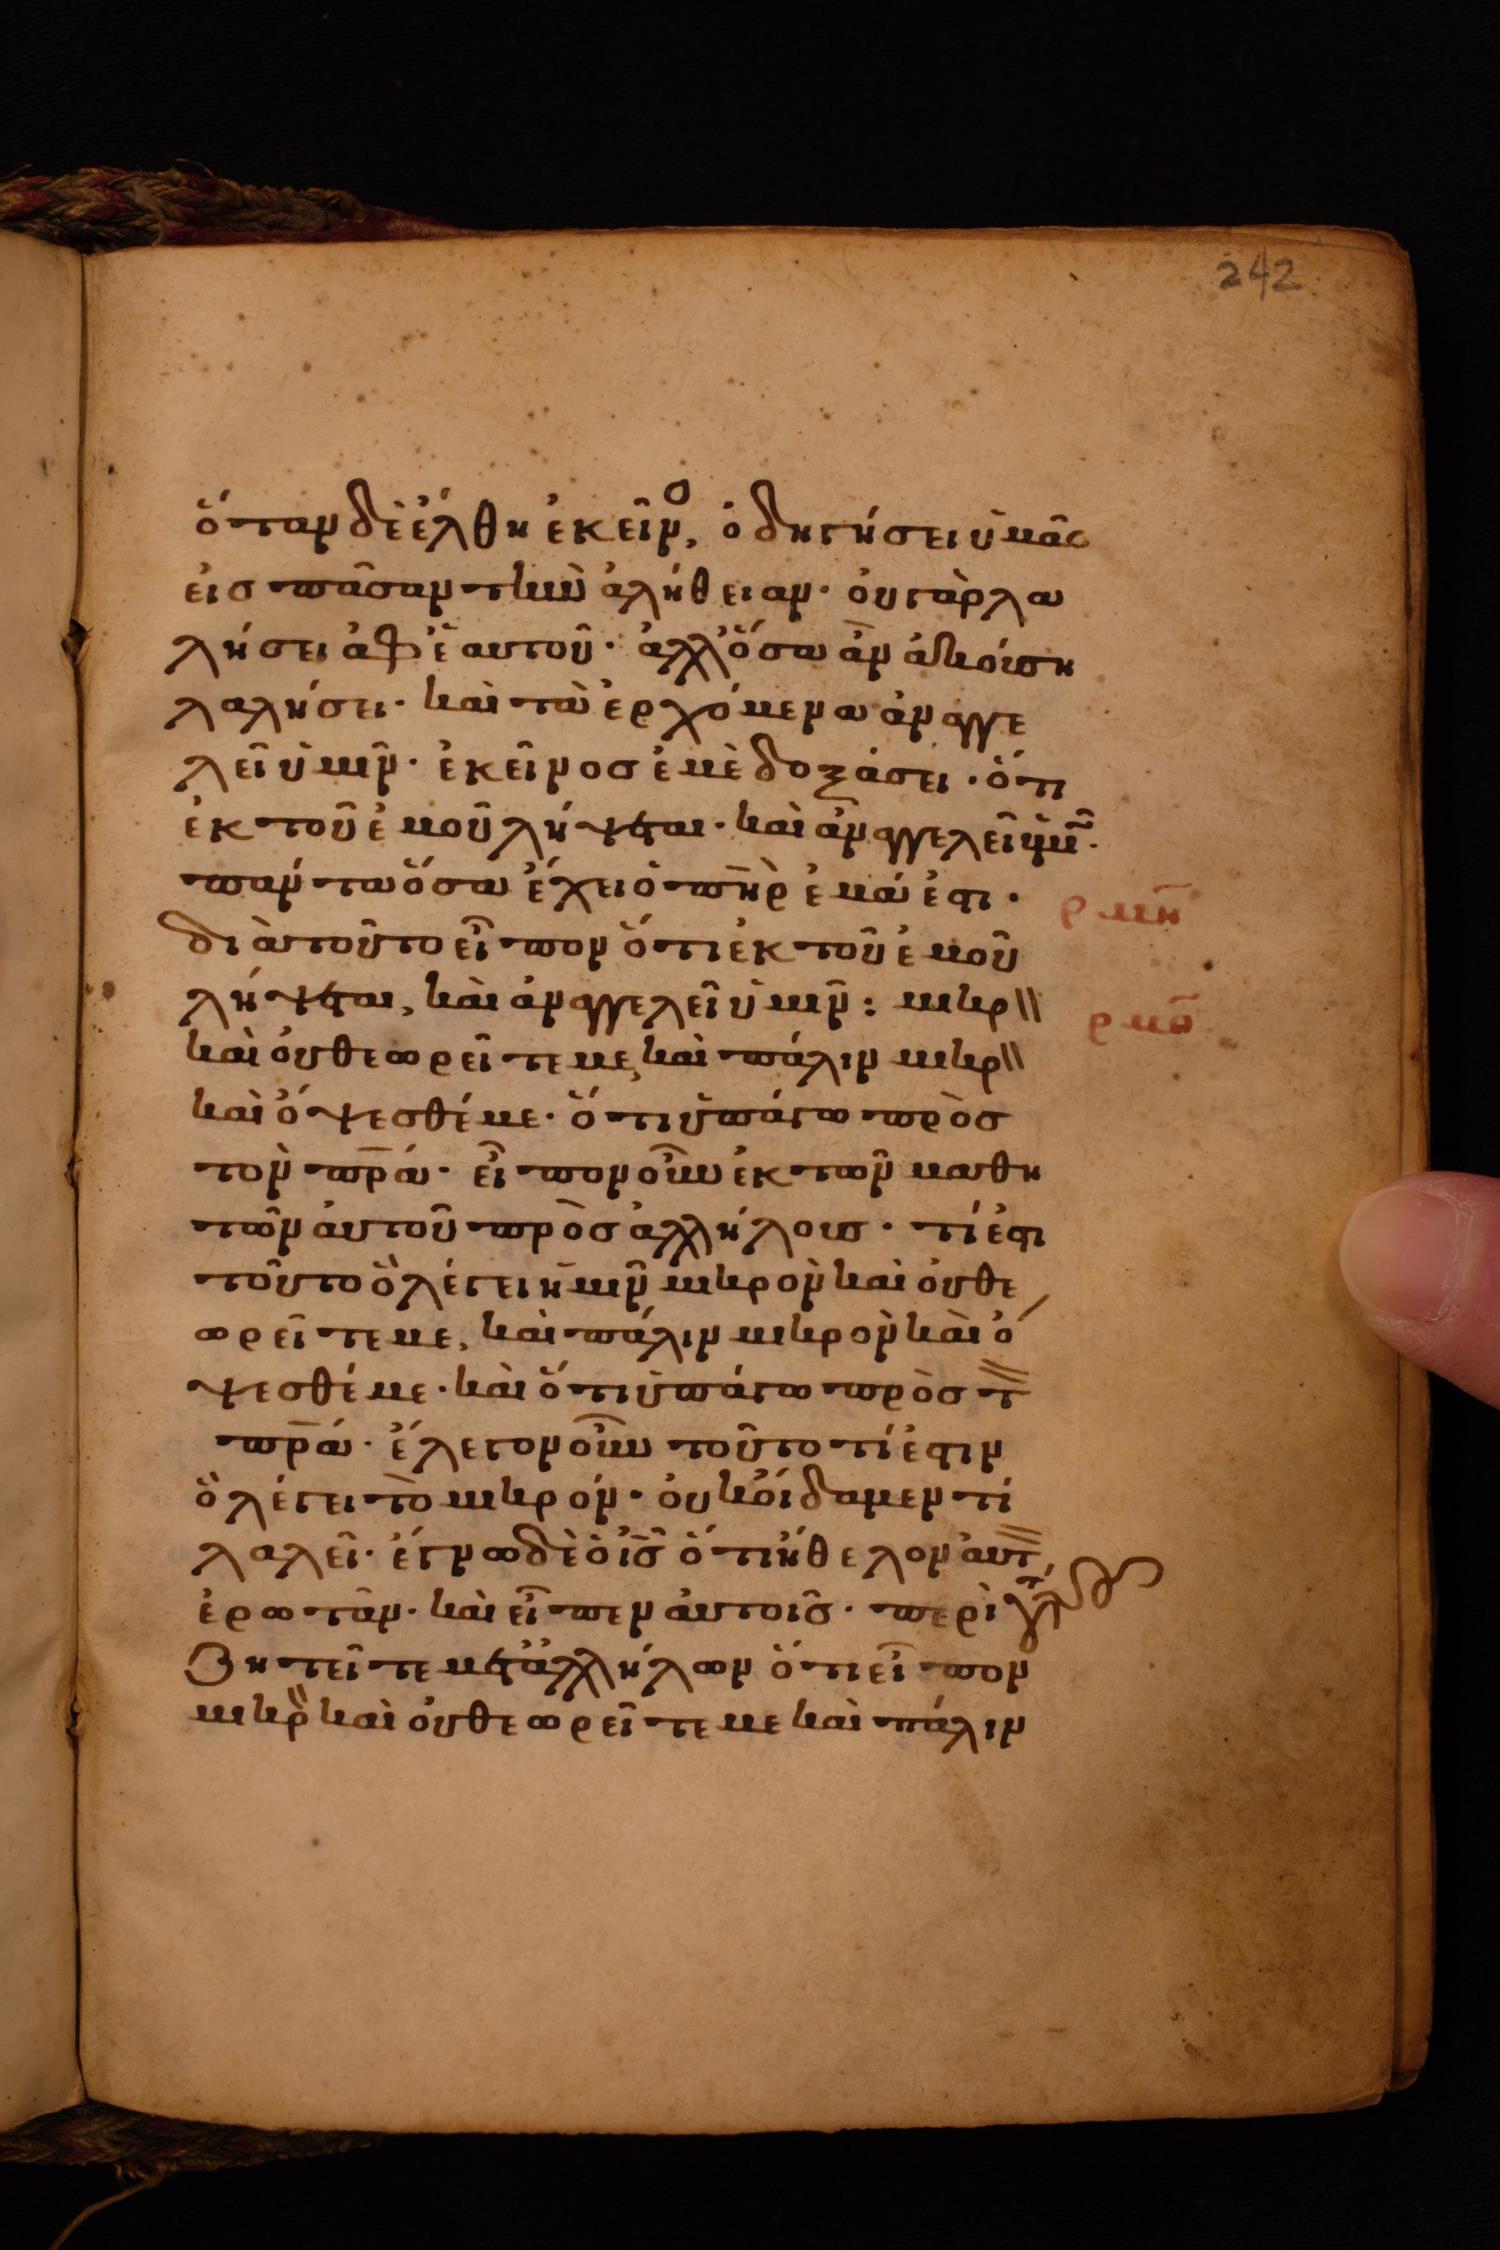 242
ὅταν δὲ ἔλθη ἐκεῖνο, ὁδηγήσει ὑμᾶς
εἰς πᾶσαν τὴν ἀλήθειαν· οὐ γὰρ λα
λήσει ἀφ' ἑαυτοῦ· ἀλλ' ὅσα ἂν ἀκούση
λαλήσει· καὶ τὰ ἐρχόμενα ἀναγγε
λεῖ ὑμῖν· ἐκεῖνος ἐμὲ δοξάσει· ὅτι
ἐκ τοῦ ἐμοῦ λήψεται· καὶ ἀναγγελεῖ ὑμῖν·
πάντα ὅσα ἔχει ὁ πηρ ἐμά ἐστι·
ρμη
διὰ τοῦτο εἶπον ὅτι ἐκ τοῦ ἐμοῦ
λήψεται, καὶ ἀναγγελεῖ ὑμῖν: μικρ\\
ρμθ
καὶ οὐ θεωρεῖτε με, καὶ πάλιν μικρ\\
καὶ ὄψεσθέ με· ὅτι ὑπάγω πρὸς
τὸν πρα· εἶπον οὖν ἐκ τῶν μαθη
τῶν αὐτοῦ πρὸς ἀλλήλους· τί ἐστι
τοῦτο ὃ λέγει ἡμῖν μικρὸν καὶ οὐ θε
ωρεῖτε με, καὶ πάλιν μικρὸν καὶ ὄ
ψεσθέ με· καὶ ὅτι ὑπάγω πρὸς τ
πρα· ἔλεγον οὖν τοῦτο τί ἐστιν
ὃ λέγει τὸ μικρόν· οὐκ οἴδαμεν τί
λαλεῖ· ἔγνω δὲ ὁ ις ὅτι ἤθελον αὐτ
ἐρωτᾶν· καὶ εἶπεν αὐτοῖς· περὶ
ζητεῖτε μετ' ἀλλήλων ὅτι εἶπον
μικρ\\ καὶ οὐ θεωρεῖτε με καὶ πάλιν